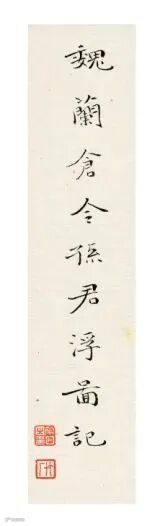 魏蘭倉令孫君浮圖記